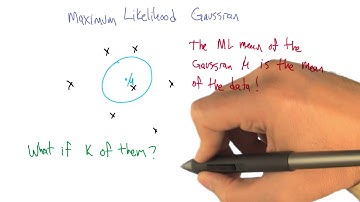 Maximum Likelihood Gaussian
The ML mean of the
Gaussian μ is the mean
of the data!
μ
What if K of them?